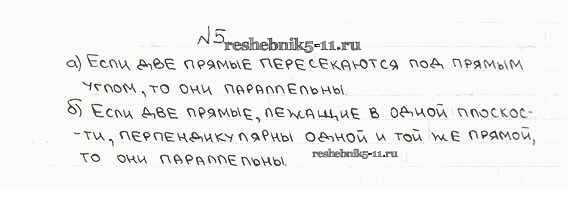 №5
reshebnik5-11.ru
а) Если две прямые пересекаются под прямым
углом, то они параллельны.
б) Если две прямые, лежащие в одной плоскос-
-ти, перпендикулярны одной и той же прямой,
то они параллельны.
reshebnik5-11.ru